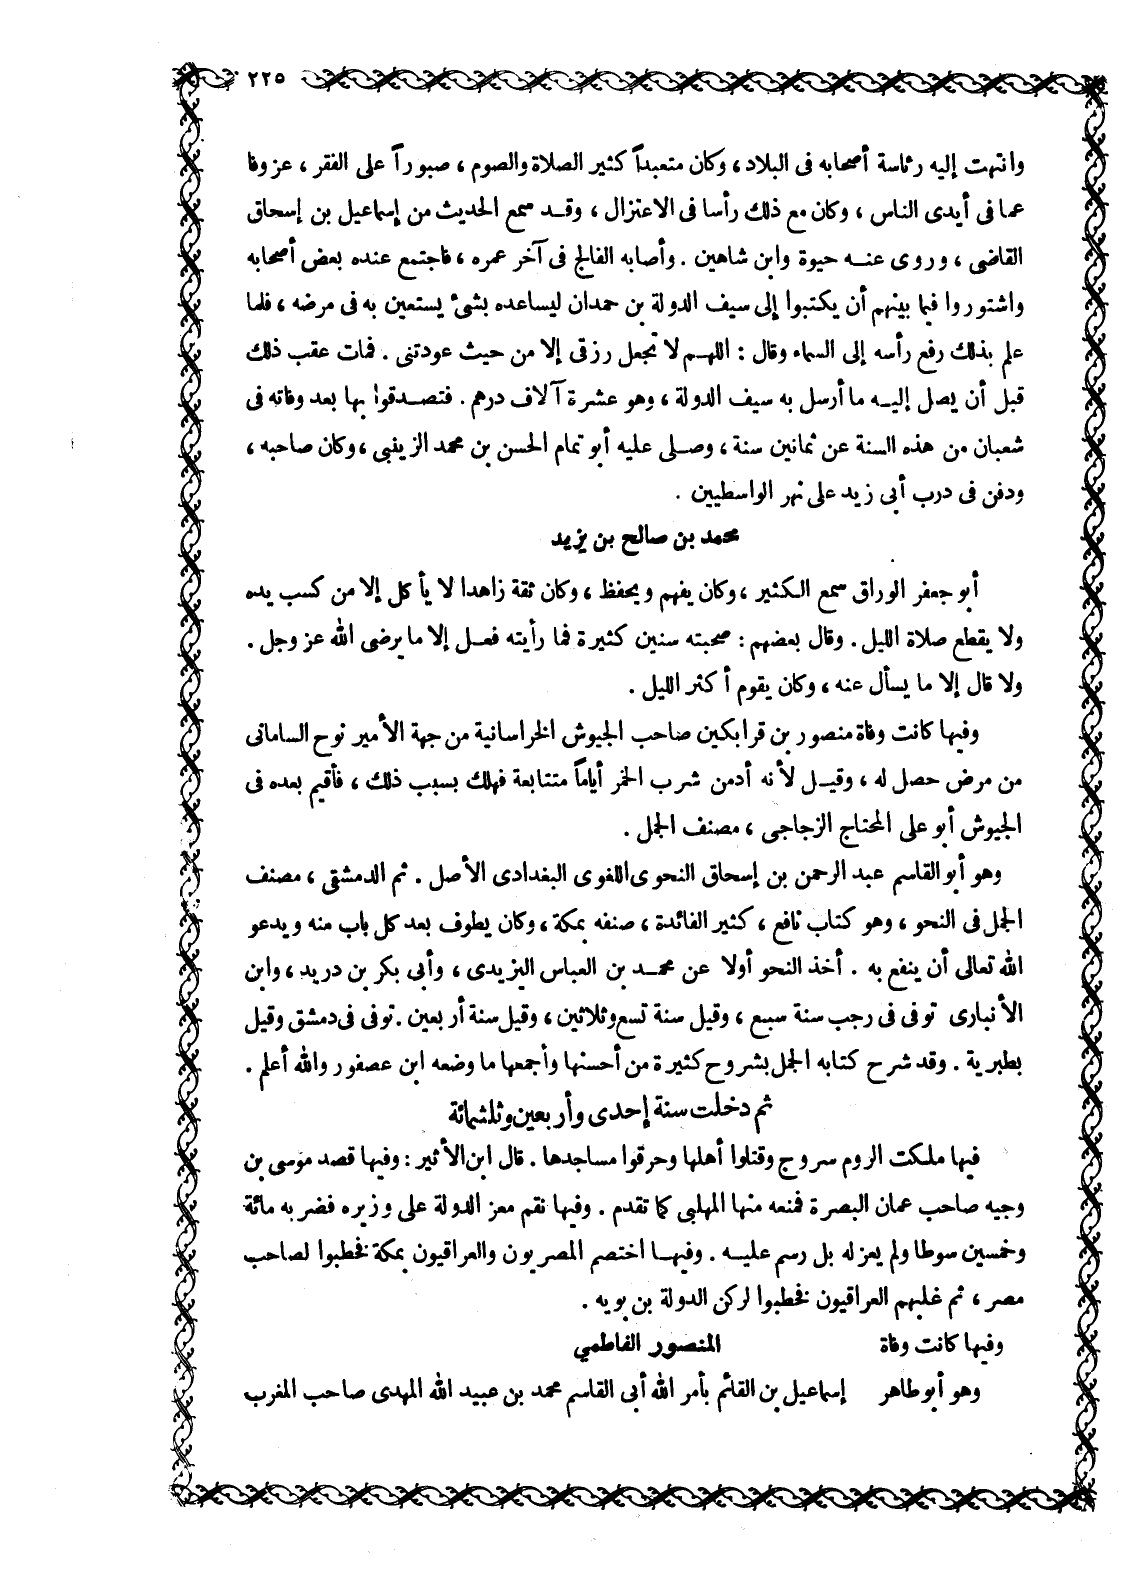 ٢٢٥
وانتهت إليه رئاسة أصحابه فى البلاد، وكان متعبداً كثير الصلاة والصوم، صبوراً على الفقر، عزوفا
عما فى أيدى الناس، وكان مع ذلك رأسا فى الاعتزال، وقد سمع الحديث من إسماعيل بن إسحاق
القاضى، وروى عنه حيوة وابن شاهين. وأصابه الفالج فى آخر عمره، فاجتمع عنده بعض أصحابه
واشتوروا فيما بينهم أن يكتبوا إلى سيف الدولة بن حمدان ليساعده بشئ يستعين به فى مرضه، فلما
علم بذلك رفع رأسه إلى السماء وقال: اللهم لا تجعل رزقى إلا من حيث عودتنى. فمات عقب ذلك
قبل أن يصل إليه ما أرسل به سيف الدولة، وهو عشرة آلاف درهم. فتصدقوا بها بعد وفاته فى
شعبان من هذه السنة عن ثمانين سنة، وصلى عليه أبو تمام الحسن بن محمد الزينبى، وكان صاحبه،
ودفن فى درب أبى زيد على نهر الواسطيين.
محمد بن صالح بن يزيد
أبو جعفر الوراق سمع الكثير، وكان يفهم ويحفظ، وكان ثقة زاهدا لا يأكل إلا من كسب يده
ولا يقطع صلاة الليل. وقال بعضهم: صحبته سنين كثيرة فما رأيته فعل إلا ما يرضى الله عز وجل.
ولا قال إلا ما يسأل عنه، وكان يقوم أكثر الليل.
وفيها كانت وفاة منصور بن قرابكين صاحب الجيوش الخراسانية من جهة الأمير نوح السامانى
من مرض حصل له، وقيل لأنه أدمن شرب الخمر أياماً متتابعة فهلك بسبب ذلك، فأقيم بعده فى
الجيوش أبو على المحتاج الزجاجى، مصنف الجمل.
وهو أبو القاسم عبد الرحمن بن إسحاق النحوى اللغوى البغدادى الأصل. ثم الدمشقى، مصنف
الجمل فى النحو، وهو كتاب نافع، كثير الفائدة، صنفه بمكة، وكان يطوف بعد كل باب منه ويدعو
الله تعالى أن ينفع به. أخذ النحو أولا عن محمد بن العباس اليزيدى، وأبى بكر بن دريد، وابن
الأنبارى توفى فى رجب سنة سبع، وقيل سنة تسع وثلاثين، وقيل سنة أربعين. توفى فى دمشق وقيل
بطبرية. وقد شرح كتابه الجمل بشروح كثيرة من أحسنها وأجمعها ما وضعه ابن عصفور والله أعلم.
ثم دخلت سنة إحدى وأربعين وثلثمائة
فيها ملكت الروم سروج وقتلوا أهلها وحرقوا مساجدها. قال ابن الأثير: وفيها قصد موسى بن
وجيه صاحب عمان البصرة فمنعه منها المهلبى كما تقدم. وفيها نقم معز الدولة على وزيره فضربه مائة
وخمسين سوطا ولم يعزله بل رسم عليه. وفيها اختصم المصريون والعراقيون بمكة فخطبوا لصاحب
مصر، ثم غلبهم العراقيون فخطبوا لركن الدولة بن بويه.
وفيها كانت وفاة المنصور الفاطمي
وهو أبو طاهر إسماعيل بن القائم بأمر الله أبى القاسم محمد بن عبيد الله المهدى صاحب المغرب